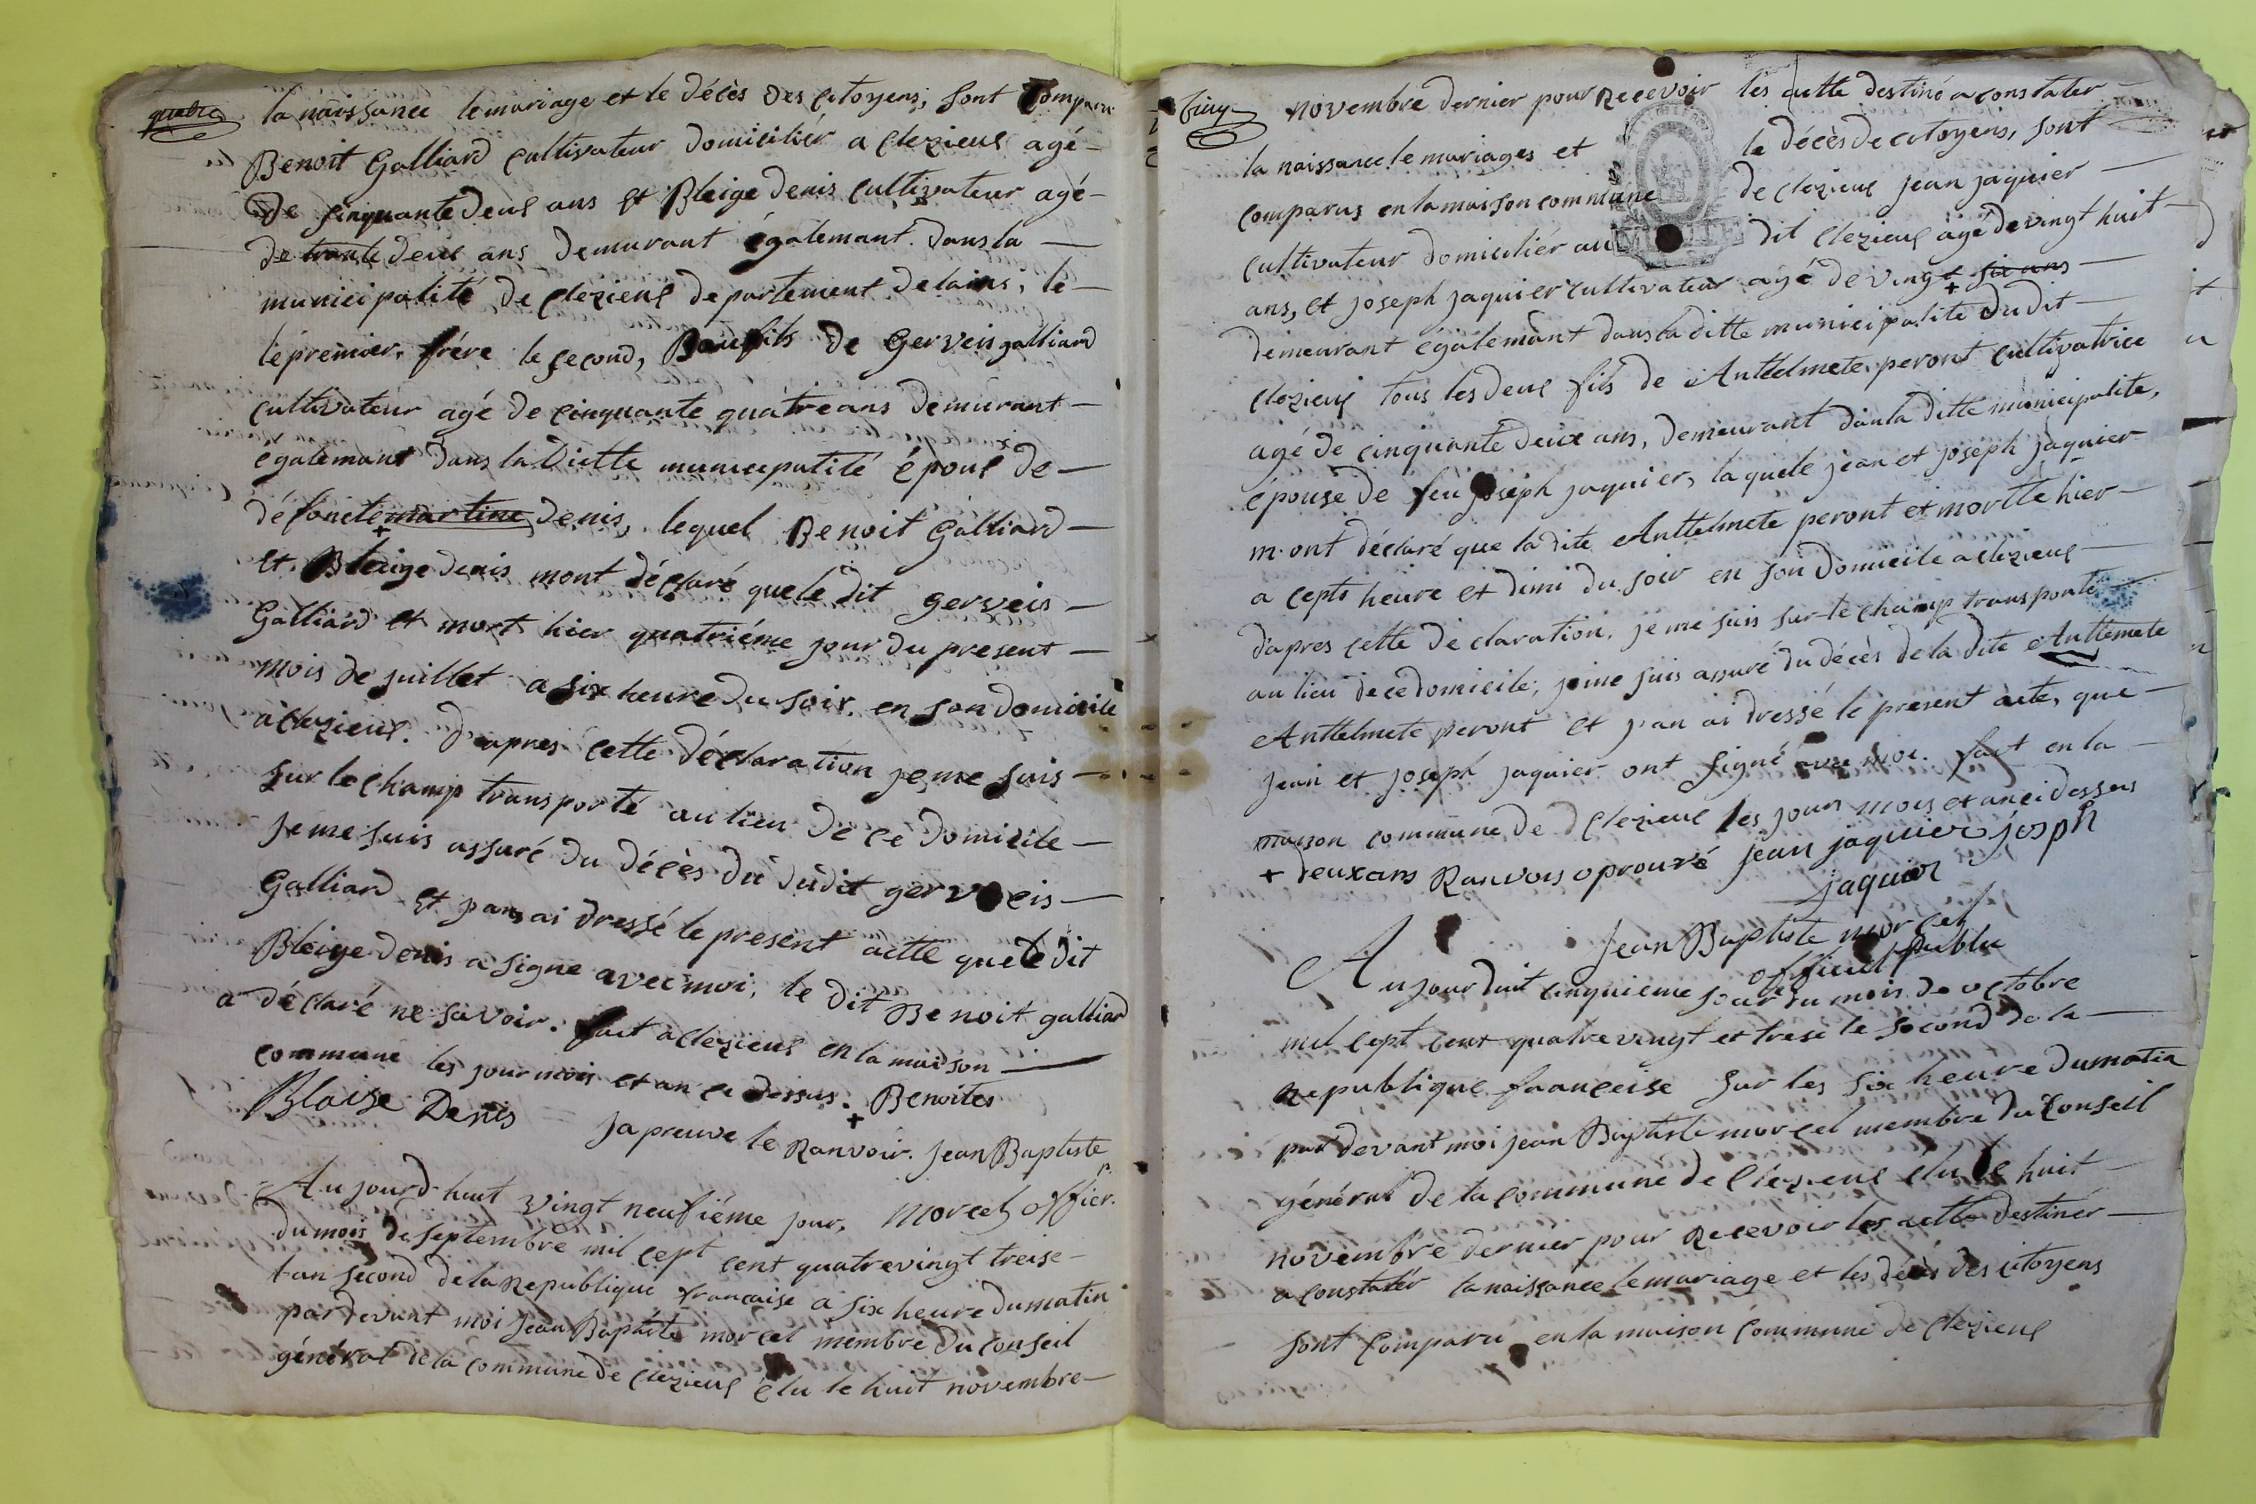 quatre
la naissance le mariage et le décès des citoyens, sont comparu
Benoit Galliard cultivateur domicilier a clezieus agé
de cinquante deus ans et Bleige denis cultivateur agé
de trante deus ans demurant égalemant dans la
municipalité de clezieus departement de lains, le
le premier, frére le second, Baufils de Gerveis galliard
cultivateur agé de cinquante quatre ans demurant
égalemant dans la Ditte municipalité épous de
défoncte martine denis, lequel Benoit Galliard
+
et Bleige denis mont déclaré que le dit gerveis
Galliard et mort hier quatriéme jour du present
mois de juillet a six heure du soir, en son domicile
a clezieus. D'apres cette déclaration je me suis
sur le champ transporté au lieu de ce domicile
je me suis assuré du décès du dudit gerveis
Galliard et j'an ai dressé le present actte que le dit
Bleige denis a signe avec moi, le dit Benoit galliard
a déclaré ne savoir. fait a clezieus en la maison
commune les jour mois et an ce dessus. + Benoites
Blaise Denis japreuve le Ranvoir. Jean Baptiste
morcel offier. p.
Aujourd huit vingt neufiéme jour,
du mois de septembre mil cept cent quatrevingt treise
l an second de la Republique francaise a six heure du matin
pardevant moi Jean Baptiste morcel membre du conseil
général de la commune de clezieus élu le huit novembre
cinq
novembre dernier pour Recevoir les actte destiné a constater
la naissance le mariages et le décès de citoyens, sont
comparus en la maison commune de clezieus jean jaquier
cultivateur domicilier au dit clezieus agé de vingt huit
ans, et joseph jaquier cultivateur agé de vingt six ans
+
demeurant égalemant dans la ditte municipalite dudit
clezieus tous les deus fils de Anthelmete peront cultivatrice
agé de cinquante deux ans, demeurant dan la ditte municipalite,
épouse de feu joseph jaquier, la quele jean et joseph jaquier
m'ont déclaré que la dite Anttelmete peront et mortte hier
a cepts heure et dimi du soir en son domicile a clezieus
d'apres cette déclaration, je me suis sur le champ transporté
au lieu de ce domicile, je me suis assuré du décès de la dite Anttemete
Anttelmete peront et j'an ai dressé le present acte, que
jean et joseph jaquier ont signé avec moi. fait en la
maison commune de clezieus les jour mois et an ci dessus
+ deux ans Ranvois oprouvé jean jaquier joseph
jaquier
Jean Baptiste morcel
officiel publu
Aujourduit cinquieme jour du mois de octobre
mil cept cent quatre vingt et trese le second de la
Republique franceise sur les six heure du matin
par devant moi jean Baptiste morcel membre du Conseil
général de la commune de clezieus élu le huit
novembre dernier pour Recevoir les actte destinér
a constater la naissance le mariage et les décès des citoyens
sont comparu en la maison commune de clezieus